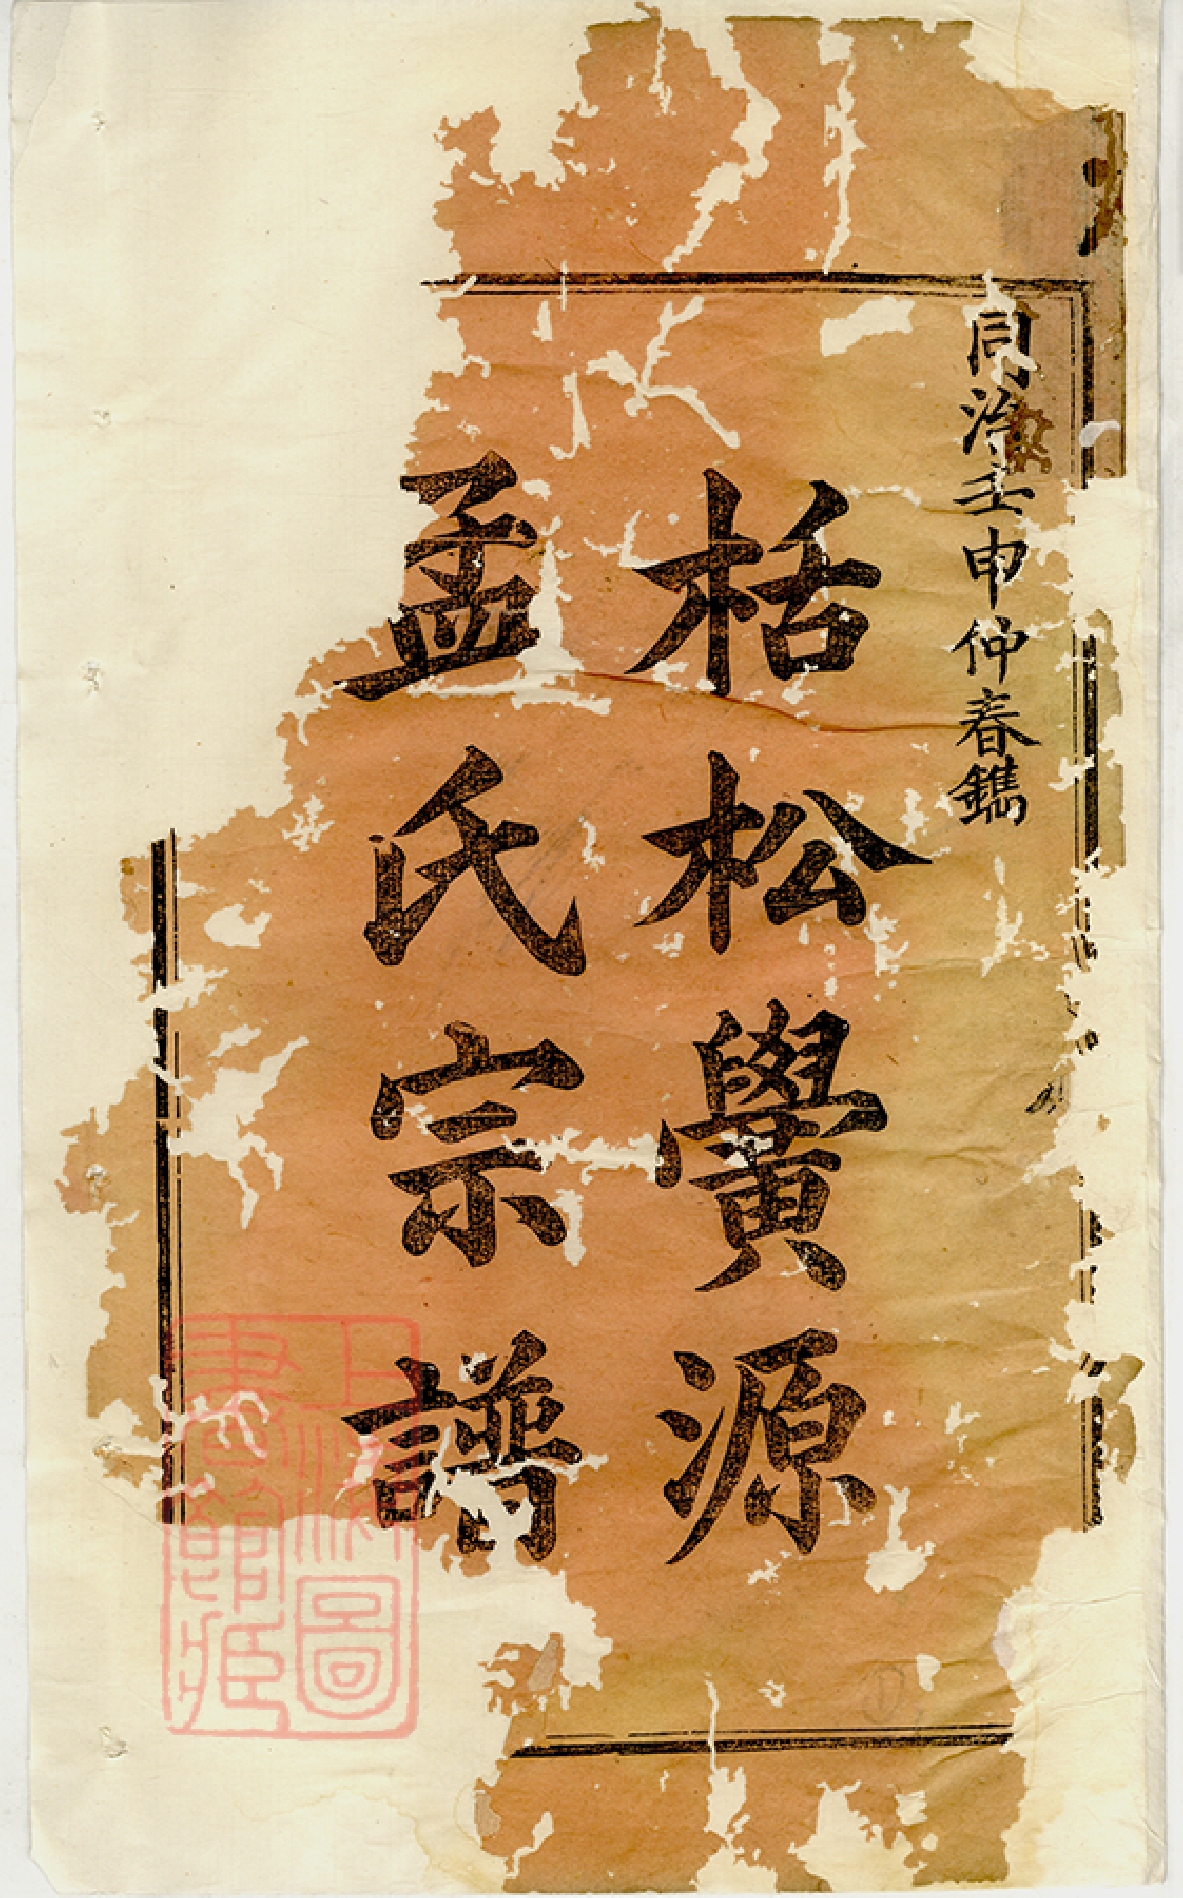 同治壬申仲春鐫
栝松黌源
孟氏宗譜
上海圖
書館藏